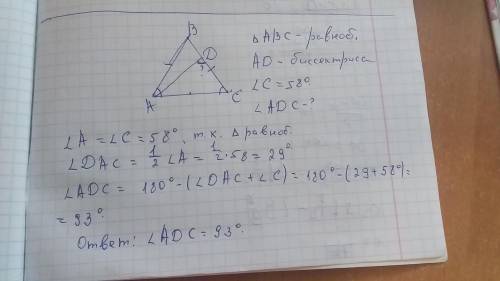 B
D
?
A
C
△ABC - равноб.
AD - биссектриса
∠C = 58°
∠ADC - ?
∠A = ∠C = 58°, т.к. △ равноб.
∠DAC = 1/2 ∠A = 1/2 · 58 = 29°
∠ADC = 180° - (∠DAC + ∠C) = 180° - (29 + 58°) =
= 93°.
Ответ: ∠ADC = 93°.